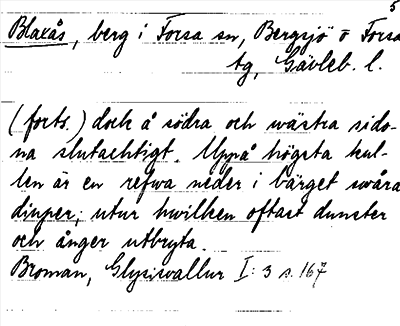 5
Blaxås, berg i Forsa sn, Bergsjö o Forsa
tg, Gävleb. l.
(forts.) dock å södra och wästra sido-
na slutachtigt. Uppå högsta kul-
len är en refwa neder i bärget swåra
diuper; utur hwilken oftast dunster
och ånger utbryta.
Broman, Glysisvallur I: 3 s. 167